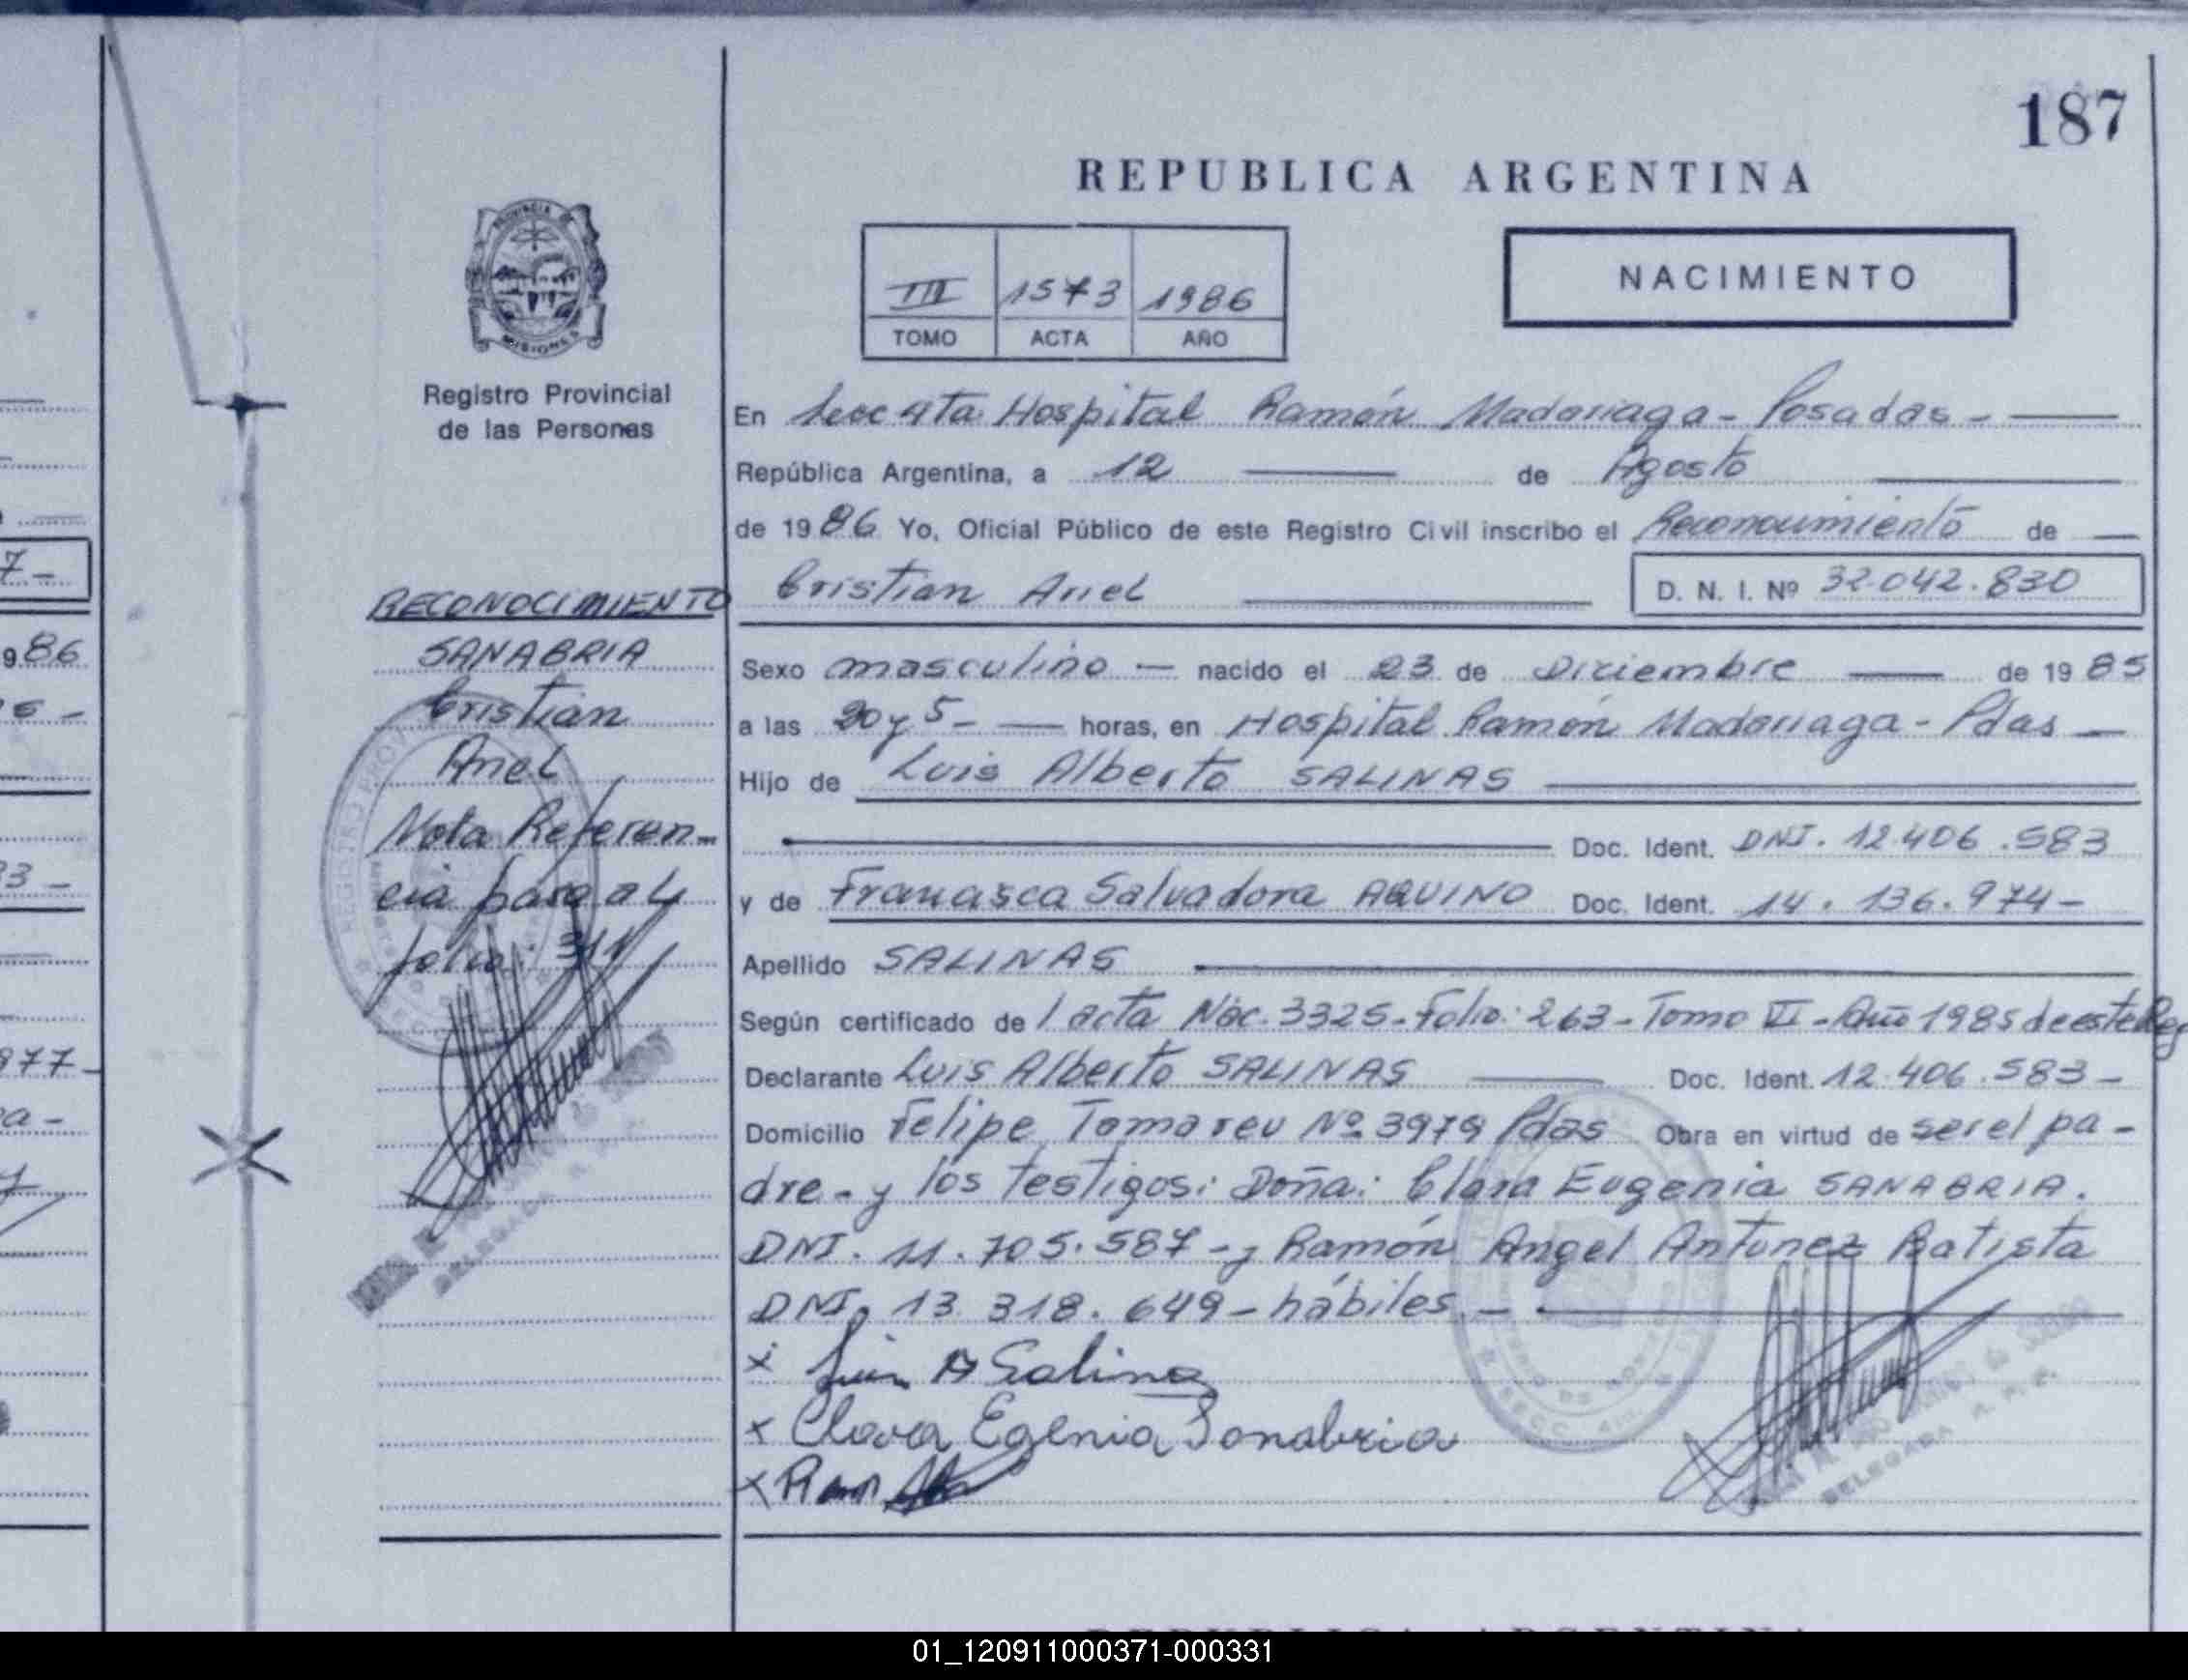 187
REPUBLICA ARGENTINA
NACIMIENTO
III 1573 1986
TOMO ACTA AÑO
PROVINCIA DE
MISIONES
Registro Provincial
de las Personas
En Secc 4ta Hospital Ramón Madariaga - Posadas -
República Argentina, a 12 de Agosto
de 1986 Yo, Oficial Público de este Registro Civil inscribo el Reconocimiento de
Cristian Ariel D. N. I. Nº 32.042.830
Sexo masculino — nacido el 23 de Diciembre de 1985
a las 20 y 5 - horas, en Hospital Ramón Madariaga - Pdas
Hijo de Luis Alberto SALINAS
Doc. Ident. DNI. 12.406.583
y de Francisca Salvadora AQUINO Doc. Ident. 14.136.974-
Apellido SALINAS
Según certificado de / acta Nac. 3325 - Folio: 263 - Tomo VI - Año 1985 de este Reg
Declarante Luis Alberto SALINAS Doc. Ident. 12.406.583-
Domicilio Felipe Tamareu Nº 3979 Pdas Obra en virtud de ser el pa-
dre - y los testigos: Doña: Clara Eugenia SANABRIA.
DNI. 11.705.587 - y Ramón Angel Antunez Batista
DNI. 13.318.649 - hábiles. -
x Luis A Salinas
x Clara Egenia Sanabria
x Ramon
RECONOCIMIENTO
SANABRIA
Cristian
Ariel
Nota Referen-
cia pase al
folio: 311
DELEGADA
DELEGADA R. P. P.
7-
986
33-
977-
a-
REPUBLICA ARGENTINA
01_120911000371-000331